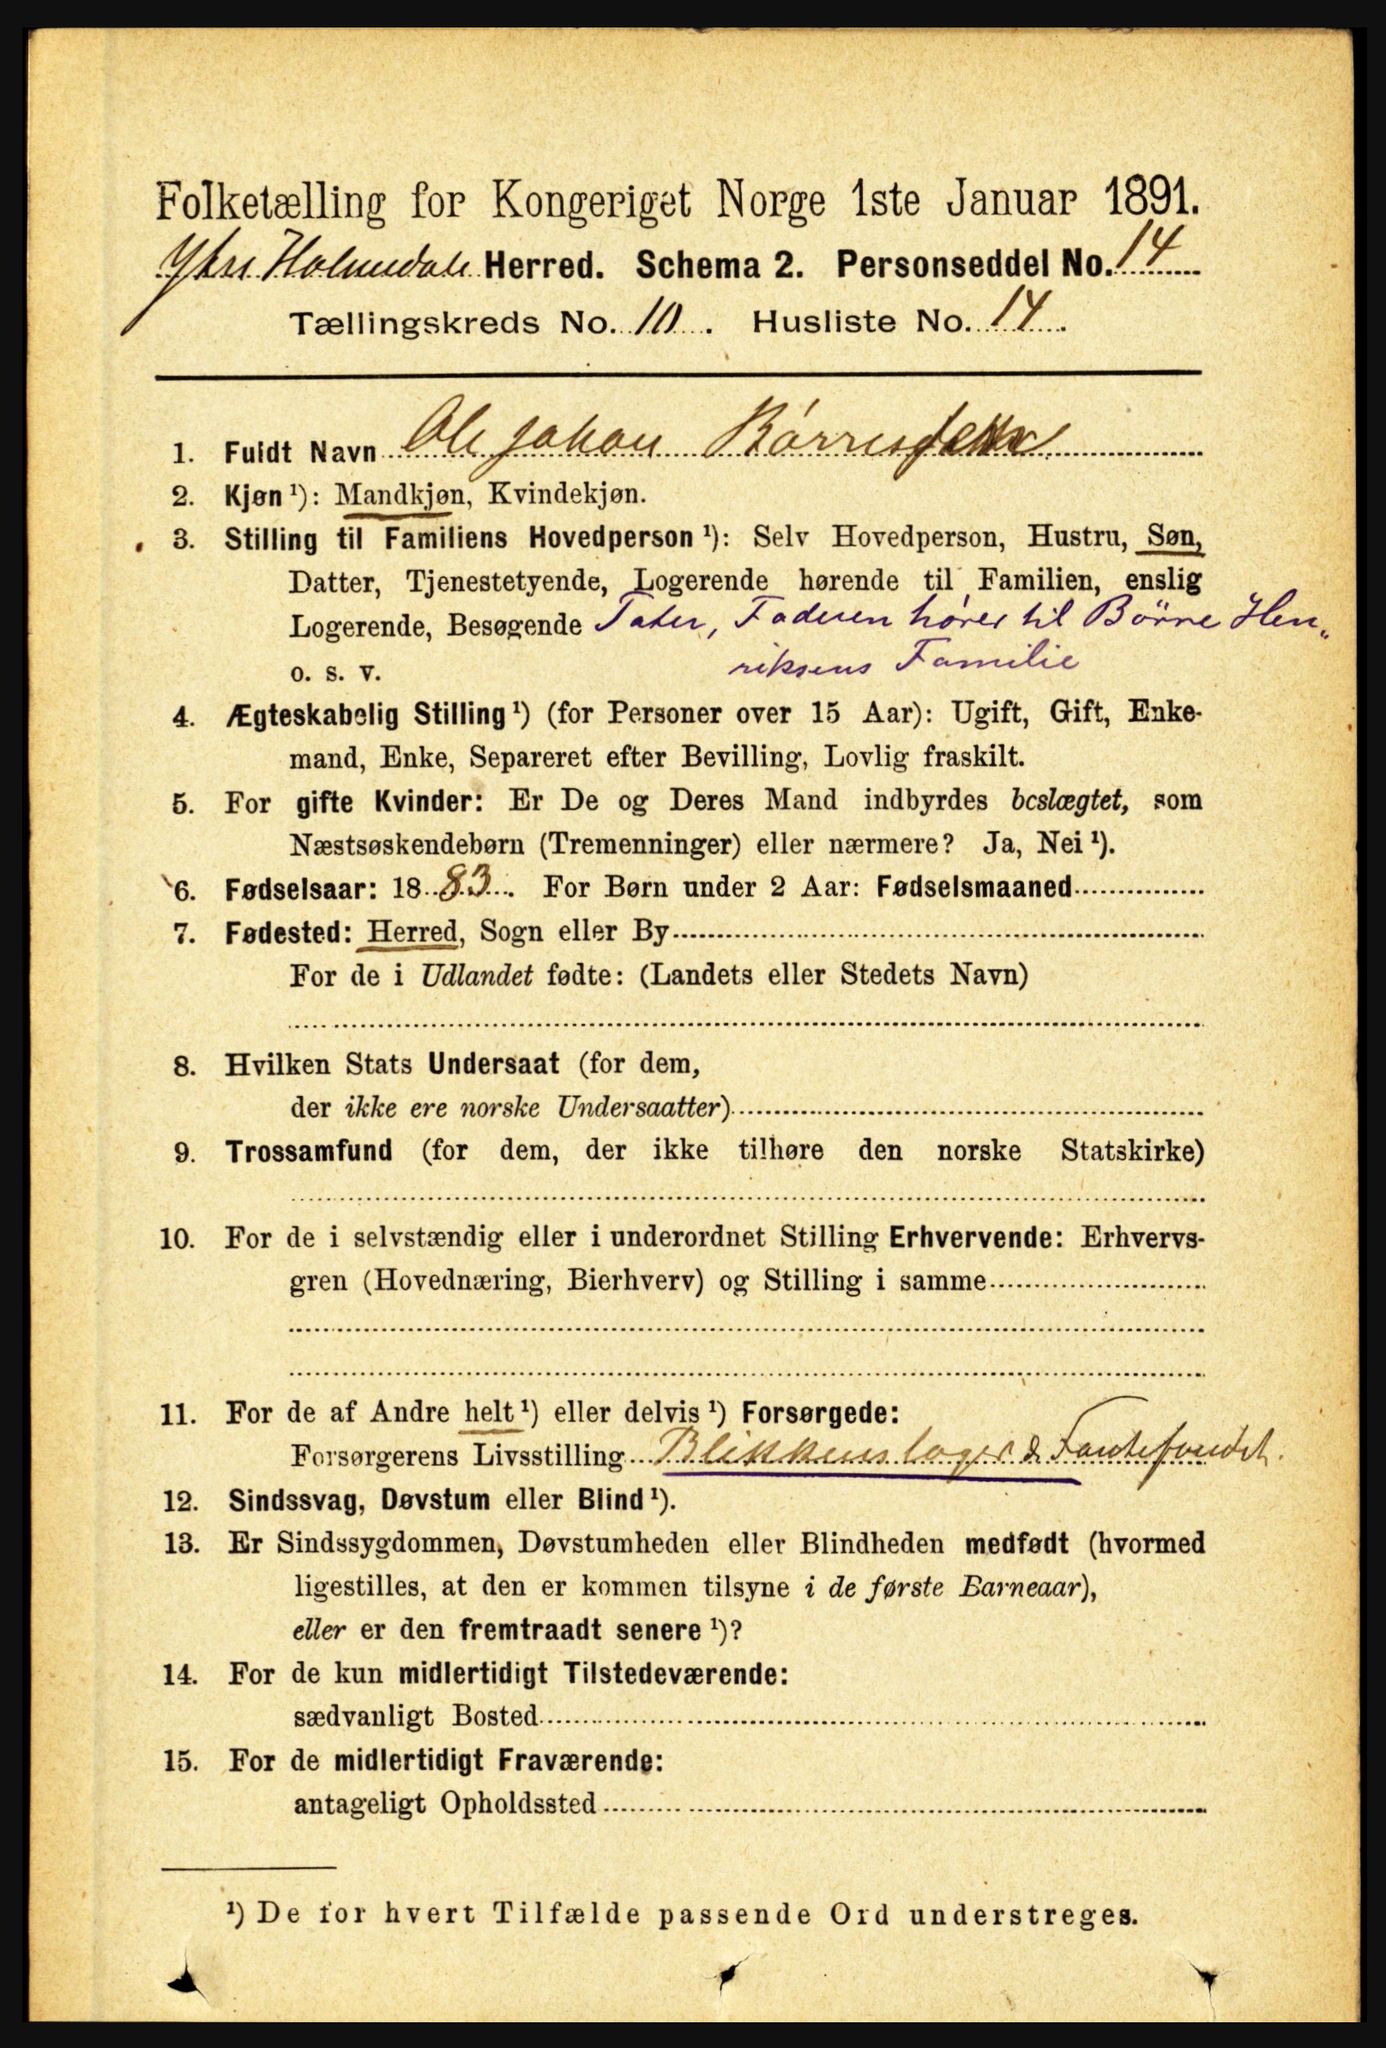 Folketælling for Kongeriget Norge 1ste Januar 1891.
Ytre Holmedals Herred. Schema 2. Personseddel No. 14
Tællingskreds No. 10. Husliste No. 14.
1. Fuldt Navn Ole Johan Børresen
2. Kjøn ¹): Mandkjøn, Kvindekjøn.
3. Stilling til Familiens Hovedperson ¹): Selv Hovedperson, Hustru, Søn,
Datter, Tjenestetyende, Logerende hørende til Familien, enslig
Logerende, Besøgende Tater, Faderen hører til Børre Hen„
o. s. v. riksens Familie
4. Ægteskabelig Stilling ¹) (for Personer over 15 Aar): Ugift, Gift, Enke-
mand, Enke, Separeret efter Bevilling, Lovlig fraskilt.
5. For gifte Kvinder: Er De og Deres Mand indbyrdes beslægtet, som
Næstsøskendebørn (Tremenninger) eller nærmere? Ja, Nei ¹).
6. Fødselsaar: 1883. For Børn under 2 Aar: Fødselsmaaned
7. Fødested: Herred, Sogn eller By
For de i Udlandet fødte: (Landets eller Stedets Navn)
8. Hvilken Stats Undersaat (for dem,
der ikke ere norske Undersaatter)
9. Trossamfund (for dem, der ikke tilhøre den norske Statskirke)
10. For de i selvstændig eller i underordnet Stilling Erhvervende: Erhvervs-
gren (Hovednæring, Bierhverv) og Stilling i samme
11. For de af Andre helt ¹) eller delvis ¹) Forsørgede:
Forsørgerens Livsstilling Blikkenslager & Fantefondet.
12. Sindssvag, Døvstum eller Blind ¹).
13. Er Sindssygdommen, Døvstumheden eller Blindheden medfødt (hvormed
ligestilles, at den er kommen tilsyne i de første Barneaar),
eller er den fremtraadt senere ¹)?
14. For de kun midlertidigt Tilstedeværende:
sædvanligt Bosted
15. For de midlertidigt Fraværende:
antageligt Opholdssted
¹) De for hvert Tilfælde passende Ord understreges.